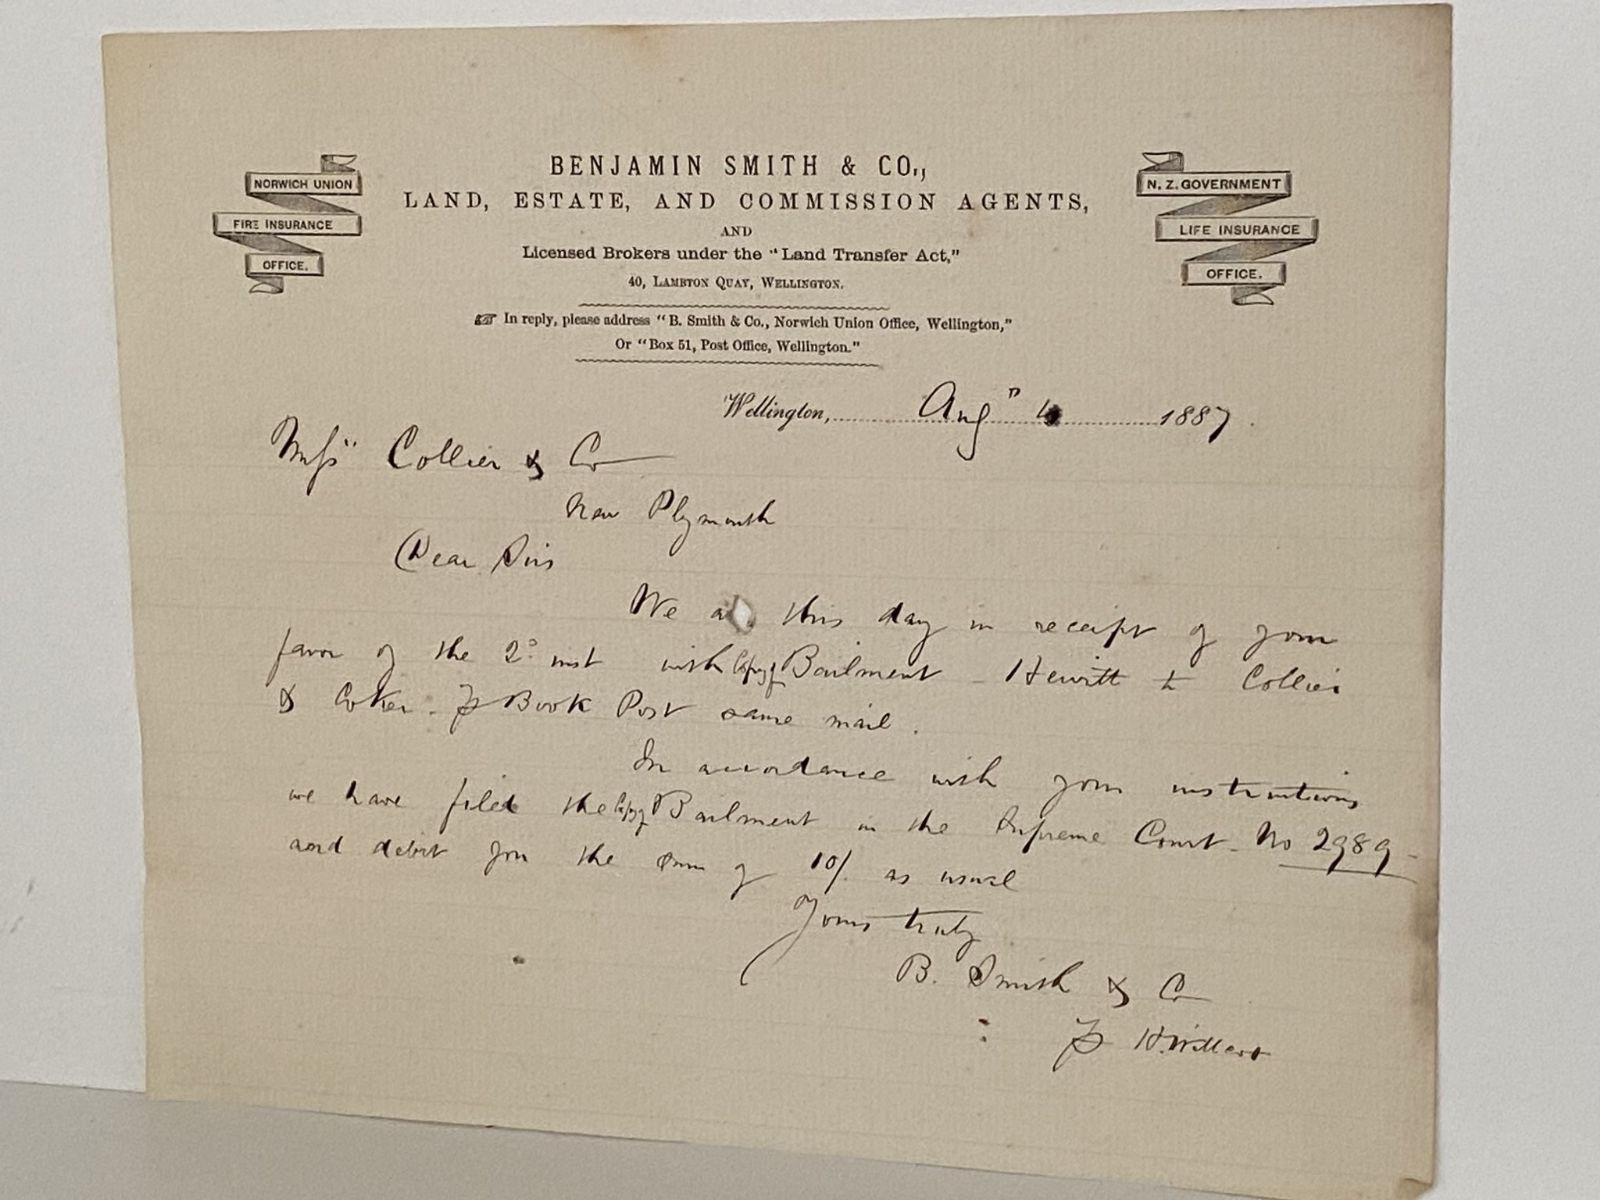 NORWICH UNION
FIRE INSURANCE
OFFICE.
BENJAMIN SMITH & CO.,
LAND, ESTATE, AND COMMISSION AGENTS,
AND
Licensed Brokers under the "Land Transfer Act,"
40, LAMBTON QUAY, WELLINGTON.
☞ In reply, please address "B. Smith & Co., Norwich Union Office, Wellington,"
Or "Box 51, Post Office, Wellington."
N. Z. GOVERNMENT
LIFE INSURANCE
OFFICE.
Wellington, Aug 4 1887.
Messrs Collier & Co
New Plymouth
Dear Sirs
We this day in receipt of your
favor of the 2º inst with Copy of Bailment - Hewitt to Collier
& Co Book Post same mail.
In accordance with your instructions
we have filed the Copy of Bailment in the Supreme Court - No 2989 -
and debit you the sum of 10/. as usual
Yours truly
B. Smith & Co
H.